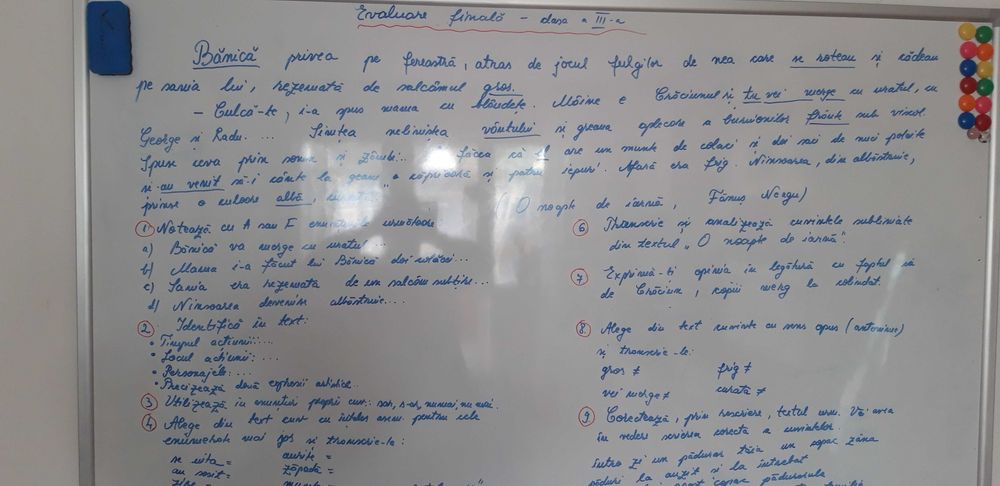 Evaluare finală - clasa a III-a
Bănică privea pe fereastră, atras de jocul fulgilor de nea care se roteau și cădeau
pe sania lui, rezemată de salcâmul gros.
- Culcă-te, i-a spus mama cu blândețe. Mâine e Crăciunul și tu vei merge cu uratul, cu
George și Radu. ... Simțea neliniștea vântului și greaua aplecare a sub viscol.
Spuse ceva prin somn și zâmbi... că el are un munte de colaci și doi saci de nuci poleite
și au venit să-i cânte la geam o căprioară și patru iepuri. Afară era frig. Ninsoarea, din albăstruie,
prinse o culoare albă, curată.
(O noapte de iarnă, Fănuș Neagu)
① Notează cu A sau F enunțurile următoare:
a) Bănică va merge cu uratul...
b) Mama i-a făcut lui Bănică doi
c) Sania era rezemată de un salcâm subțire...
d) Ninsoarea devenise albăstruie...
② Identifică în text:
• Timpul acțiunii:...
• Locul acțiunii:...
• Personajele:...
• Precizează două expresii artistice...
③ Utilizează în enunțuri proprii cuv.: sar, s-ar, numai, nu mai.
④ Alege din text cuv. cu înțeles asem. pentru cele
enumerate mai jos și transcrie-le:
se uita =
au sosit =
zăpadă =
⑥ Transcrie și analizează cuvintele subliniate
din textul „O noapte de iarnă".
⑦ Exprimă-ți opinia în legătură cu faptul că
de Crăciun, copiii merg la colindat.
⑧ Alege din text cuvinte cu sens opus (antonime)
și transcrie-le:
gros ≠ frig ≠
vei merge ≠ curată ≠
9. Corectează, prin rescriere, textul urm. Vei avea
în vedere scrierea corectă a cuvintelor.
Întro zi un pădurar tăia un copac zâna
păduri la auzit și la întrebat
copac pădurarule